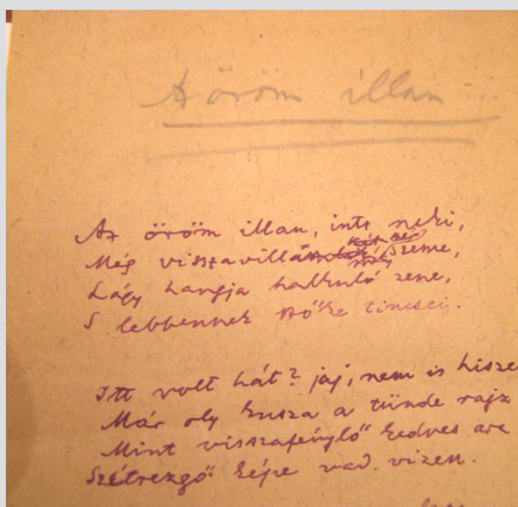 Az öröm illan...
Az öröm illan, ints neki,
Még visszavillan két szeme,
Lágy hangja halkuló zene,
S lebbennek szőke tincsei.
Itt volt hát? jaj, nem is hisze
Már oly kusza a tünde rajz
Mint visszafénylő kedves arc
Szétrezgő képe vad vizen.